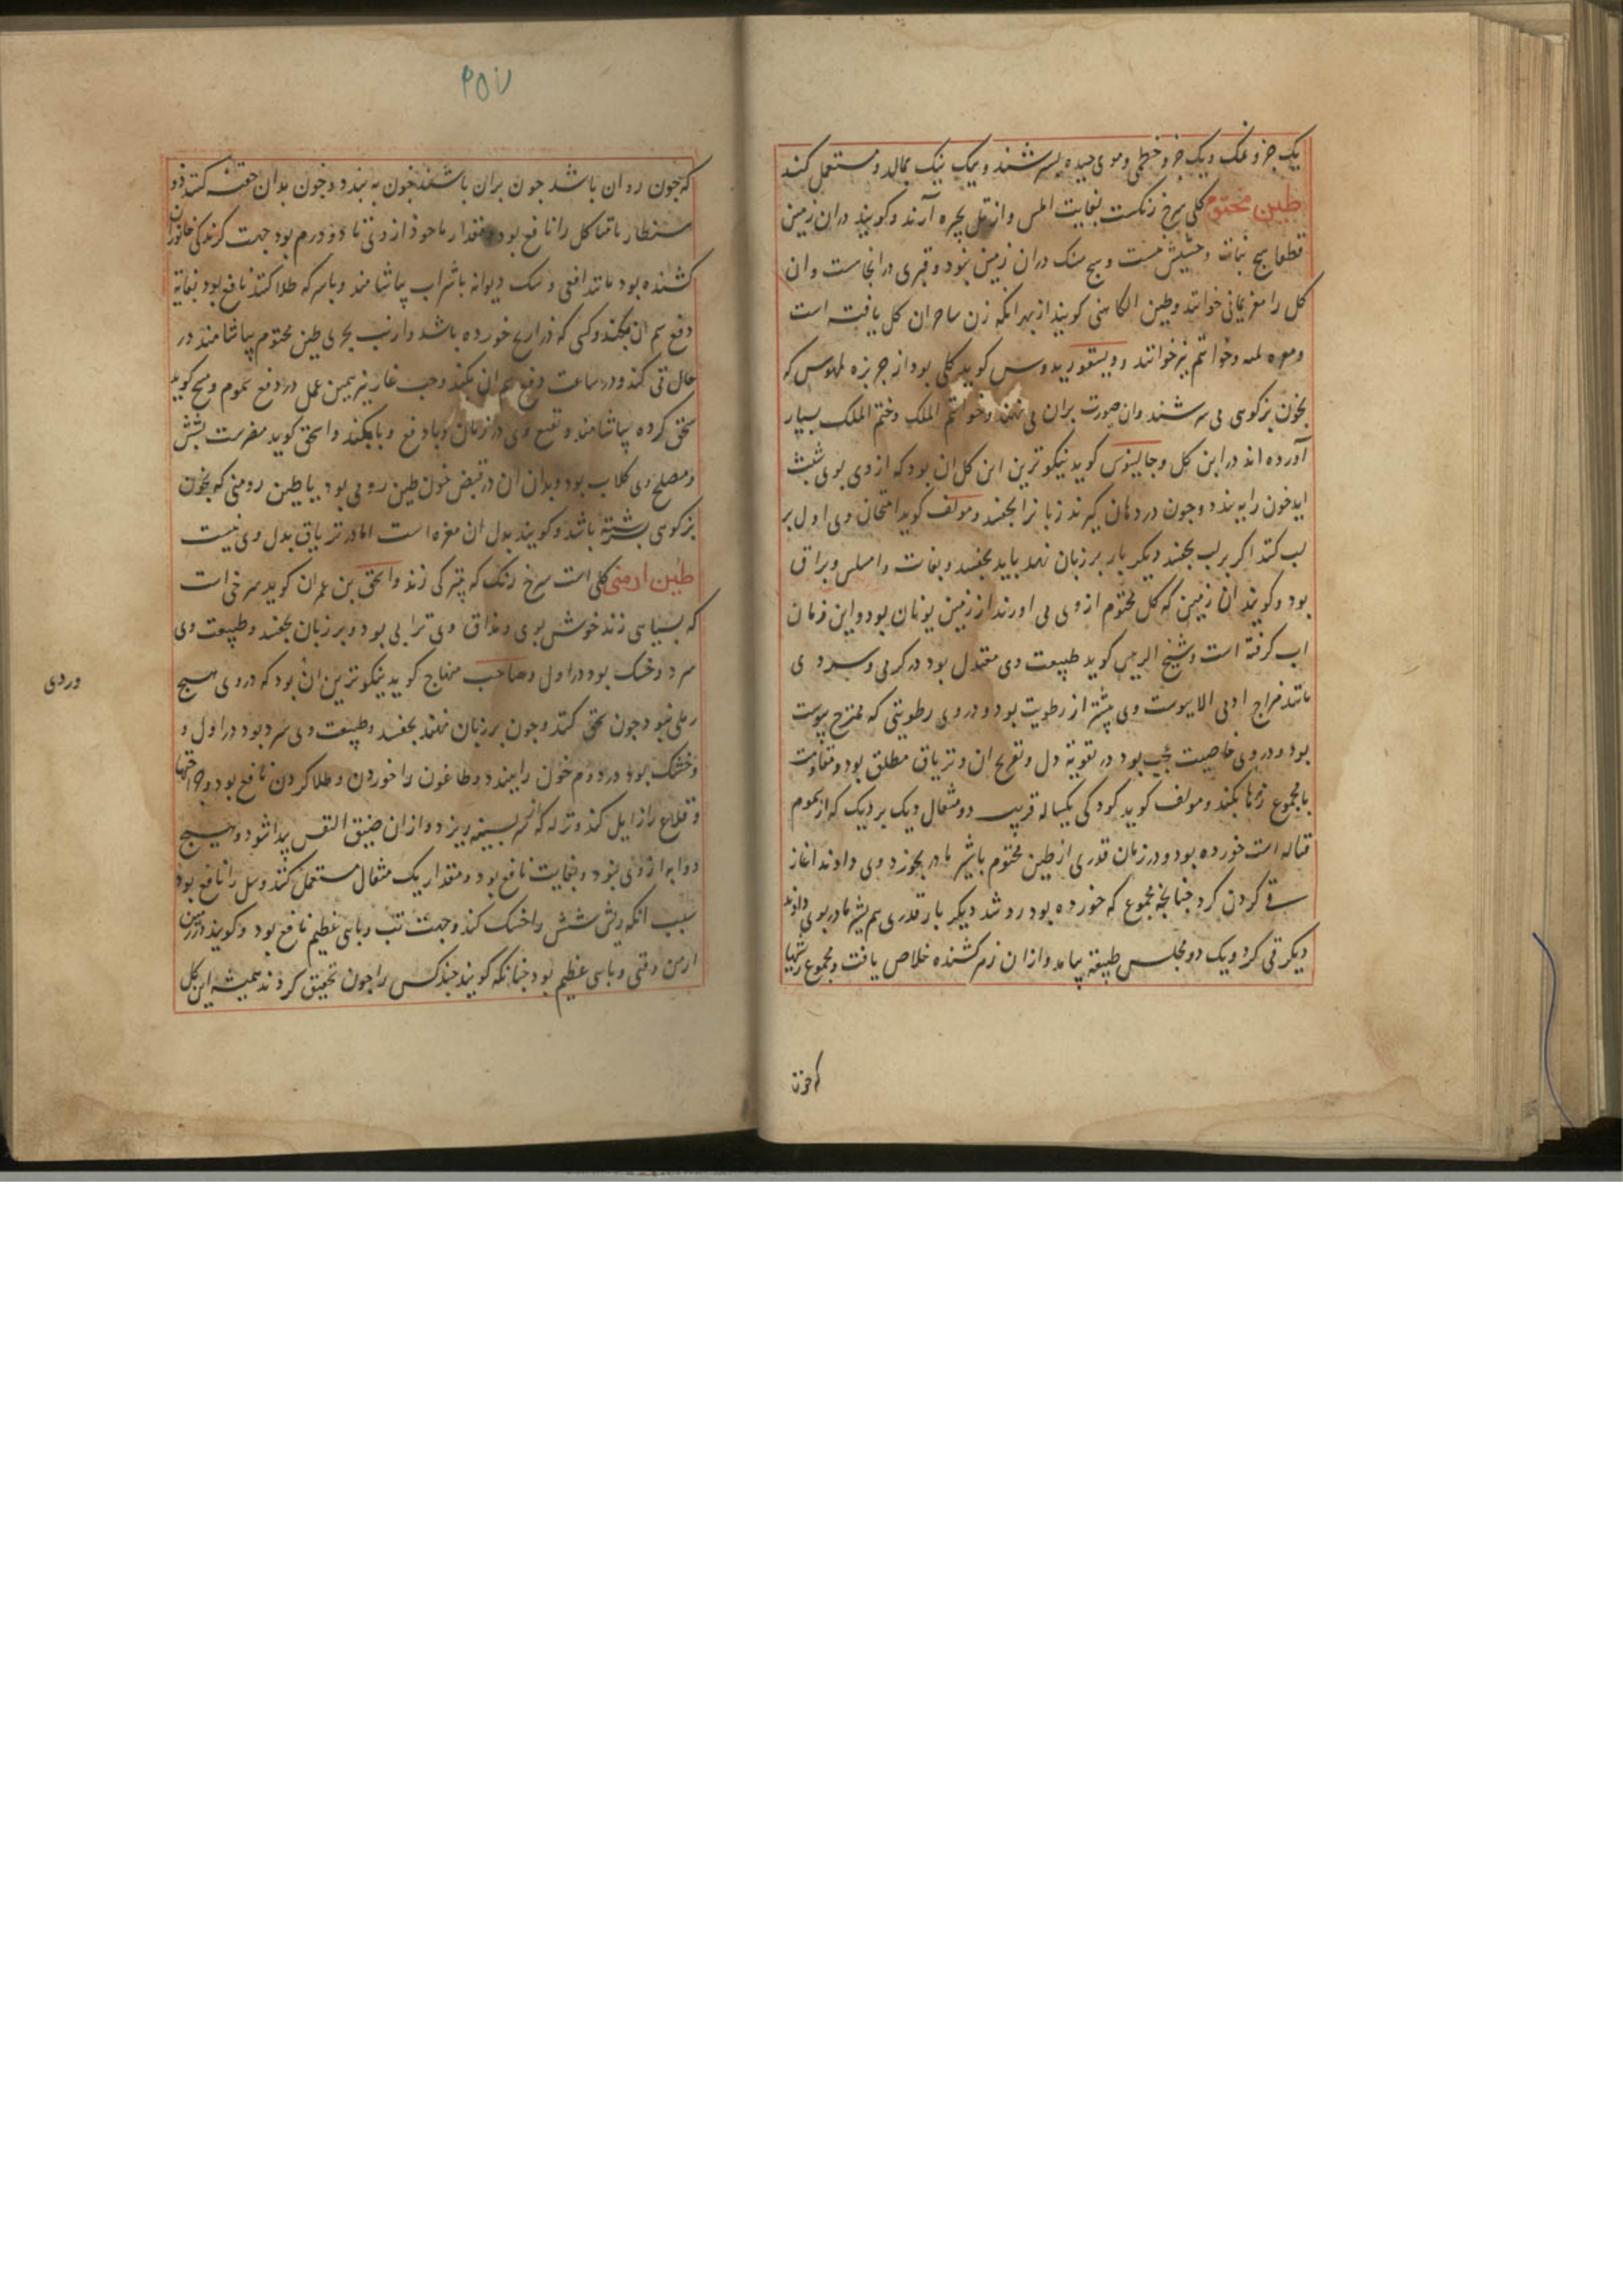 یک جزو نمک و یک جزو خطمی و موی جیده بسرشند و نیک نیک بمالد و مستعمل کنند
طین مختوم کلی سرخ رنکست بغایت املس و از تل بحیره آرند و کویند دران زمین
قطعا هیچ نبات و حشیش نیست و هیچ سنک دران زمین نبود و قبری در انجاست و ان
کل را مغره یمانی خوانند و طین الکاهنی کویند از بهر انکه زن ساحر ان کل یافته است
و خواتم نیز خوانند و دیسقوریدوس کوید کلی بود از جزیره که
بخون بزکوهی می سرشند و ان صورت بران می نهند و خواتم الملک و ختم الملک بسیار
آورده اند در این کل و جالینوس کوید نیکوترین این کل ان بود که از وی بوی شبث
اید خون را به بندد و چون در دهان کیرند زبانرا بجفسد و مولف کوید امتحان وی اول بر
لب کنند اکر بر لب بجفسد دیکر بار بر زبان نهند باید بجفسد و بغایت املس و براق
بود و کویند ان زمین که کل مختوم از وی می اورند از زمین یونان بود و این زمان
اب کرفته است و شیخ الرییس کوید طبیعت وی معتدل بود در کرمی و سردی
مانند مزاج ادمی الا یبوست وی بیشتر از رطوبت بود و در وی رطوبتی که ممتزج بیوست
بود و در وی خاصیت عجیب بود در تقویة دل و تفریح ان و تریاق مطلق بود و مقاومت
با مجموع زهرها بکند و مولف کوید کودکی یکساله قریب دو مثقال دیک بردیک که از سموم
قتاله است خورده بود و در زمان قدری از طین مختوم با شیر مادر بخورد وی دادند اغاز
قی کردن کرد چنانجه مجموع که خورده بود رد شد دیکر بار قدری هم بشیر مادر بوی دادند
دیکر قی کرد و یک دو مجلس طبیعة بیامد و ازان زهر کشنده خلاص یافت و مجموع ریشها
که خون
۲۵۷
که خون روان باشد جون بران باشند خون به بندد و جون بدان حقنه کنند ذو
سنطاریا و تاکل را نافع بود و مقدار ماخوذ از وی تا دو درم بود جهت کزندکی جانوران
کشنده بود مانند افعی و سک دیوانه با شراب بیاشامند و با سرکه طلا کنند نافع بود بغایة
دفع سم ان بکند و کسی که ذراریح خورده باشد و ارنب بحری طین مختوم بیاشامند در
حال قی کند و در ساعت دفع سم ان بکند و حب غار نیز همین عمل در دفع سموم و مسیح کوید
سحق کرده بیاشامند و نفع وی در زمان وبا دفع وبا بکند و اسحق کوید مضرست بشش
و مصلح وی کلاب بود و بدل ان در قبض خون طین رومی بود یا طین رومی که بخون
بزکوهی بسرشته باشد و کویند بدل ان مغره است اما در تریاق بدل وی نیست
طین ارمنی کلی است سرخ رنک که بتیرکی زند و اسحق بن عمران کوید سرخی است
که بسیاهی زند خوش بوی و مذاق وی ترابی بود و بر زبان بجفسد و طبیعت وی
سرد و خشک بود در اول و صاحب منهاج کوید نیکوترین ان بود که در وی هیچ
رملی نبود جون سحق کنند و جون بر زبان نهند بجفسد و طبیعت وی سرد بود در اول و
و خشک بود در دوم خون را ببندد و طاعون را خوردن و طلا کردن نافع بود و جراحتها
و قلاع را زایل کند و نزله که از سر بسینه ریزد و ازان ضیق النفس پیدا شود و هیچ
دوا به از وی نبود و بغایت نافع بود و مقدار یک مثقال مستعمل کنند و سل را نافع بود
سبب انکه ریش شش را خشک کند و جهت تب وبایی عظیم نافع بود و کویند در زمین
ارمن وقتی وبایی عظیم بود جنانکه کویند جند کس را جون تحقیق کردند همیشه این کل
وردی